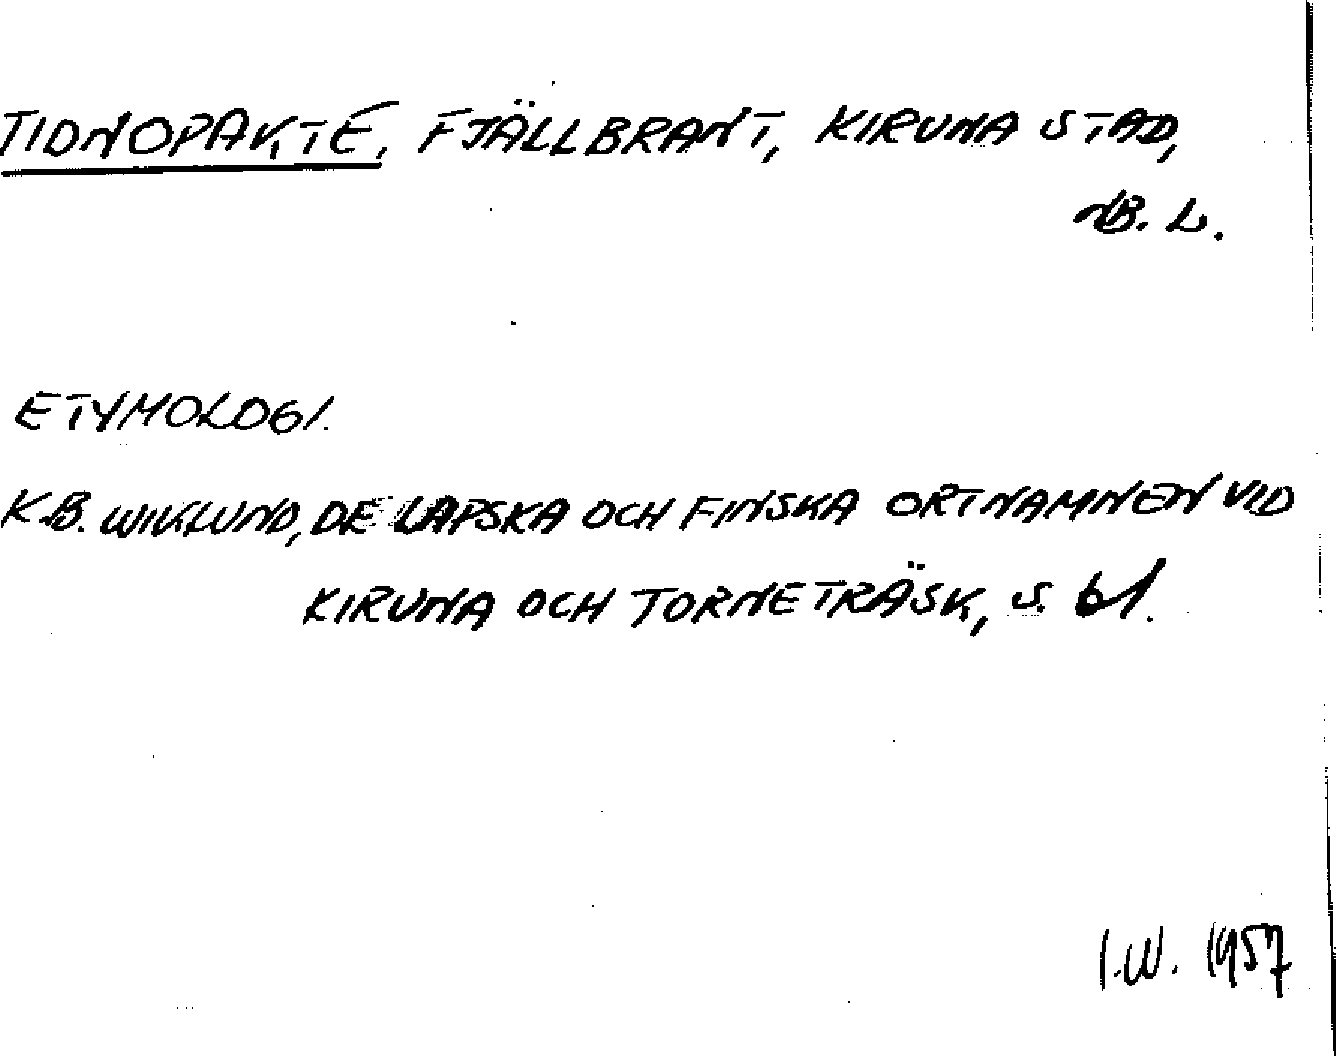 TIDNOPAKTE, FJÄLLBRANT, KIRUNA STAD,
NB. L.
ETYMOLOGI.
K.B. WIKLUND, DE LAPSKA OCH FINSKA ORTNAMNEN VID
KIRUNA OCH TORNETRÄSK, S. 61.
I.W. 1957